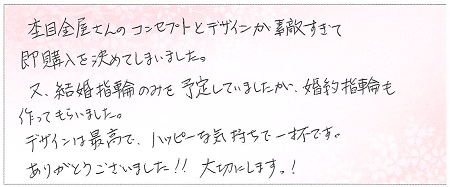 杢目金屋さんのコンセプトとデザインが素敵すぎて
即購入を決めてしまいました。
又、結婚指輪のみを予定していましたが、婚約指輪も
作ってもらいました。
デザインは最高で、ハッピーな気持ちで一杯です。
ありがとうございました!! 大切にします。!